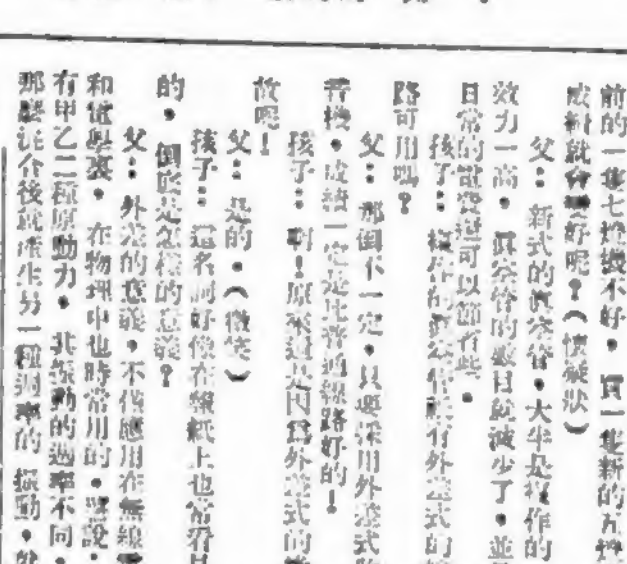 前的一隻七燈機不好。買一隻新的五燈
成績就會變好呢？（懷疑狀）
父：新式的眞空管。大半是複作的
效力一高。眞空管的數目就減少了。並且
日常的電費也可以節省些。
孩子：複作的眞空管祇有外差式的線
路可用嗎？
父：那倒不一定。只要採用外差式收
音機。成績一定是比普通線路好的！
孩子：啊！原來這是因爲外差式的
故呢！
父：是的。（微笑）
孩子：這名詞好像在報紙上也常看見
的。倒底是怎樣的意義？
父：外差的意義，不僅應用在無線電
和電學裏。在物理中也時常用的。譬說。
有甲乙二種原動力。其振動的週率不同。
那麼混合後就產生另一種週率的振動。就